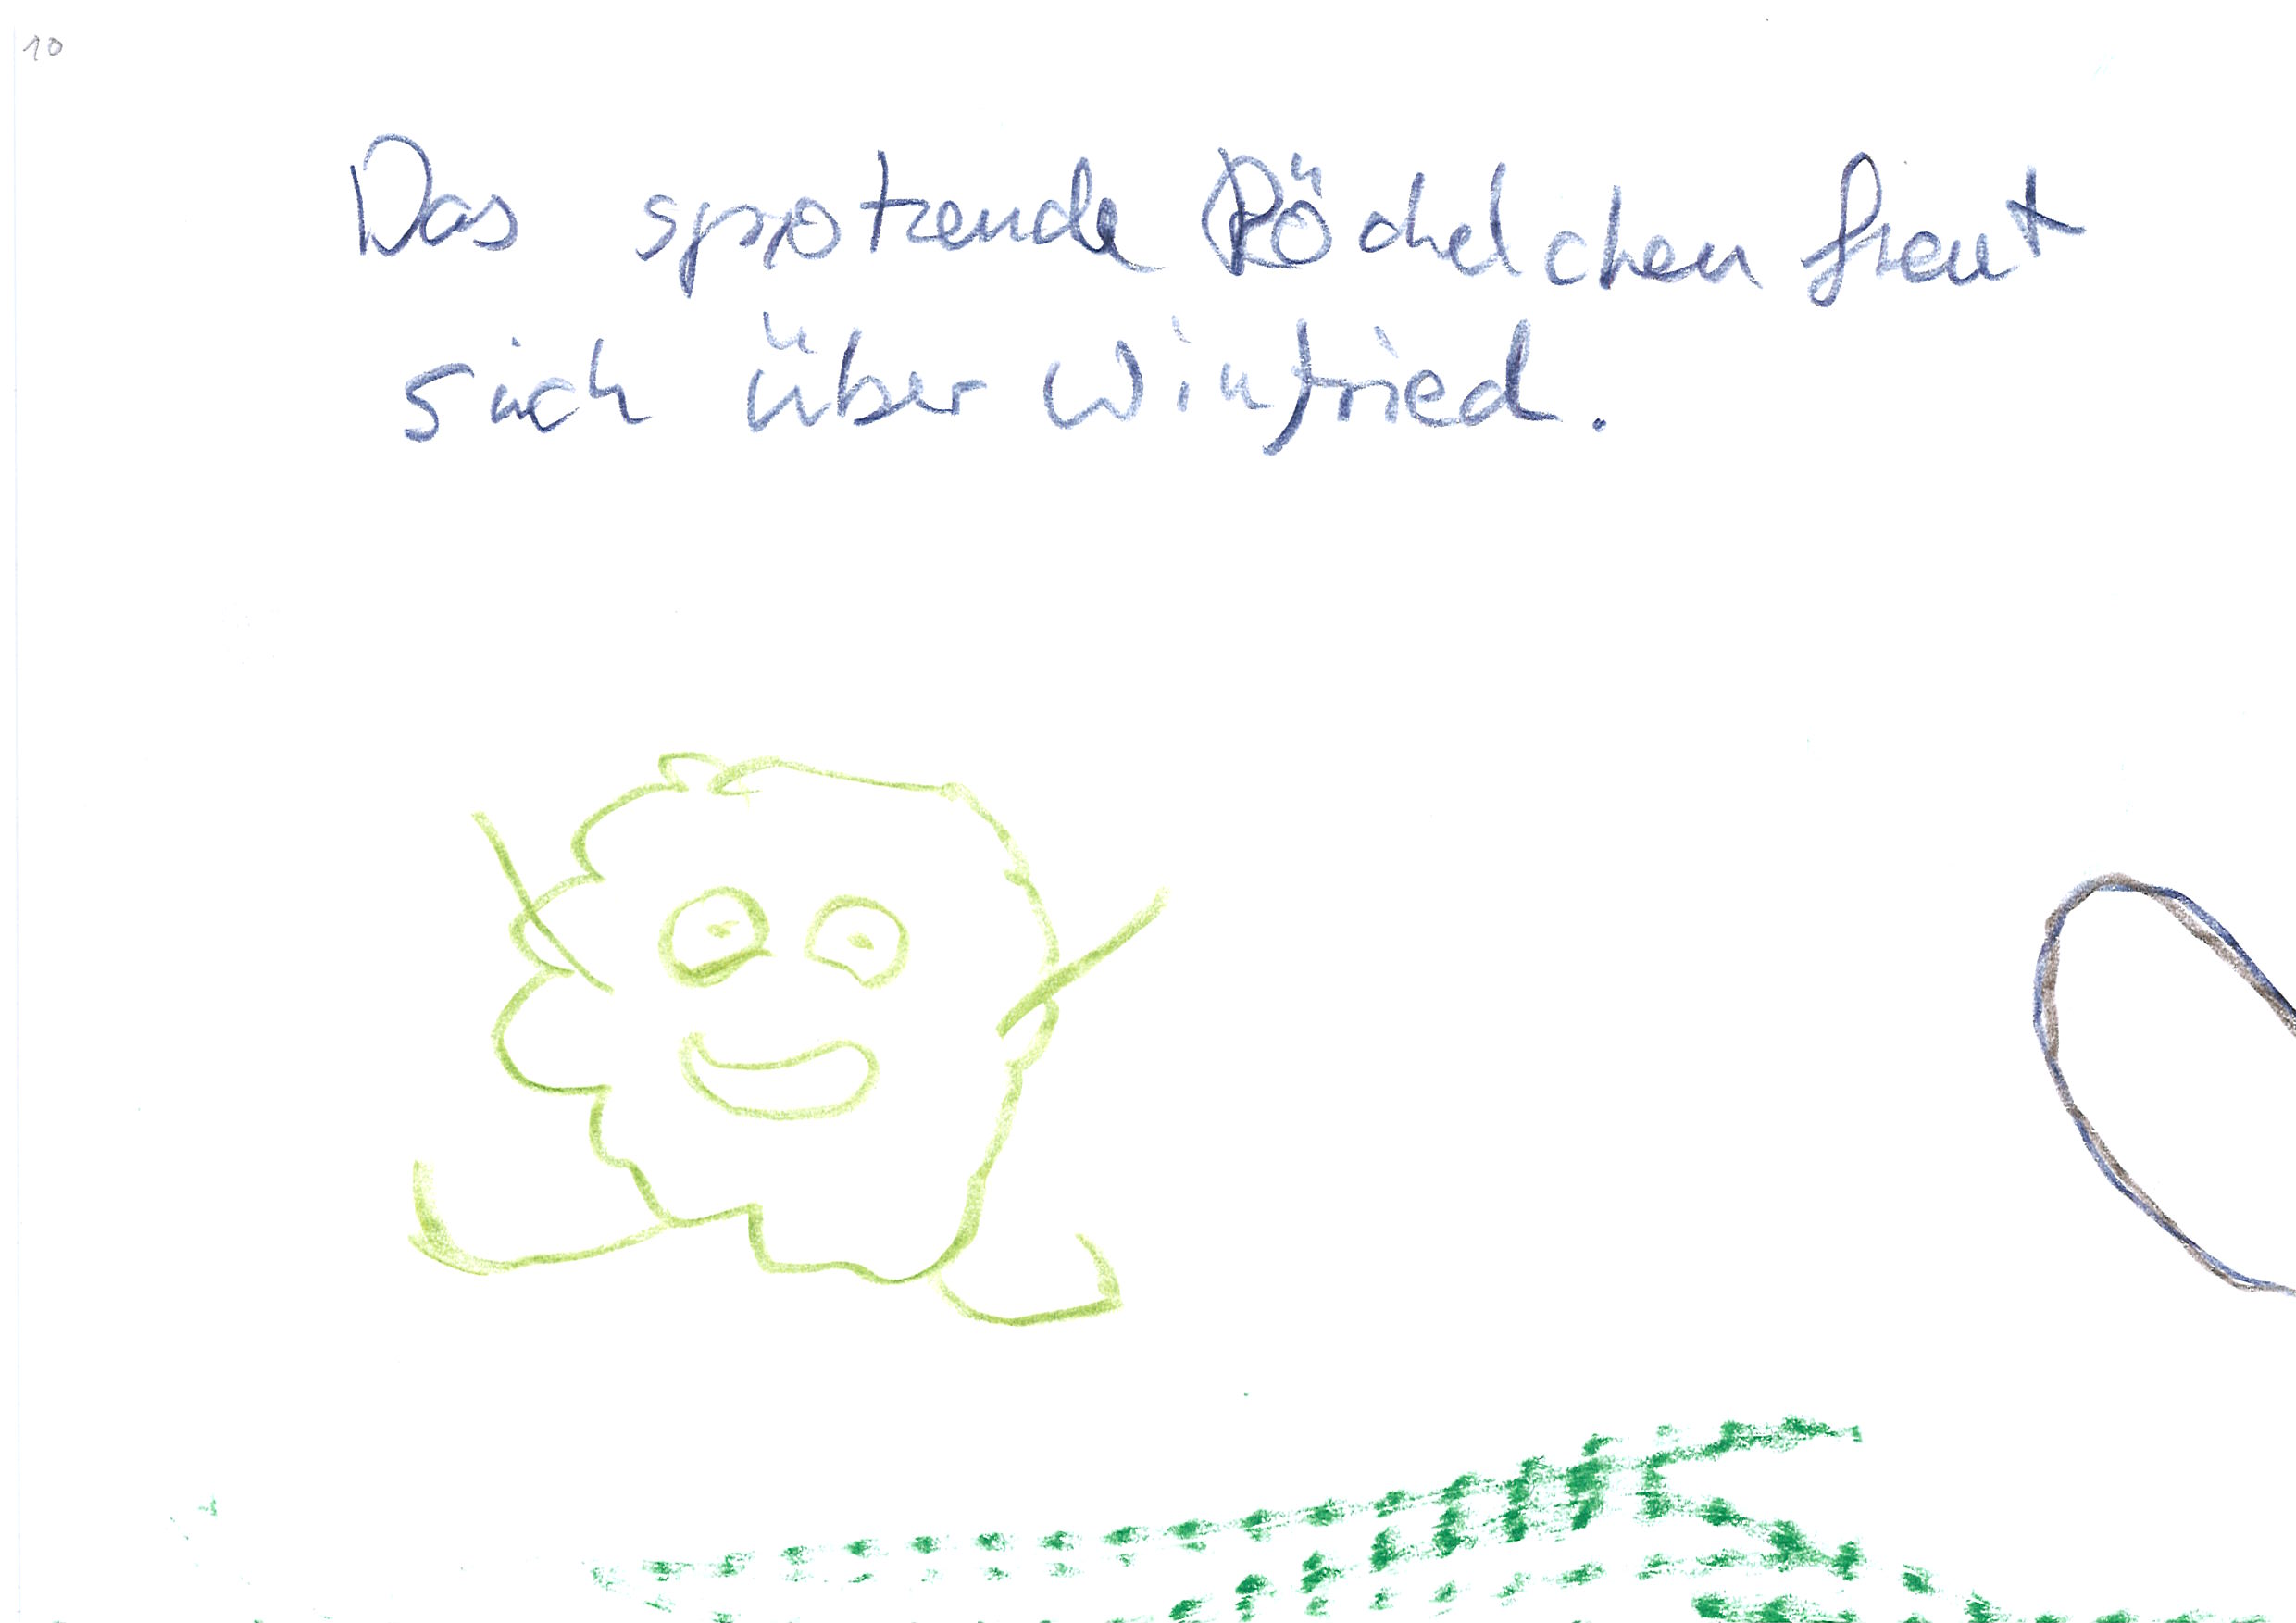 10
Das sprotzende Röchelchen freut
sich über Winfried.